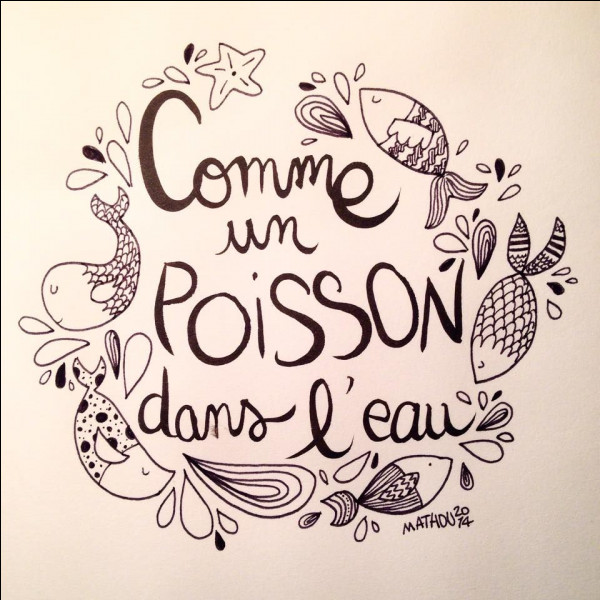 Comme
un
POISSON
dans l'eau
MATHOU 2014